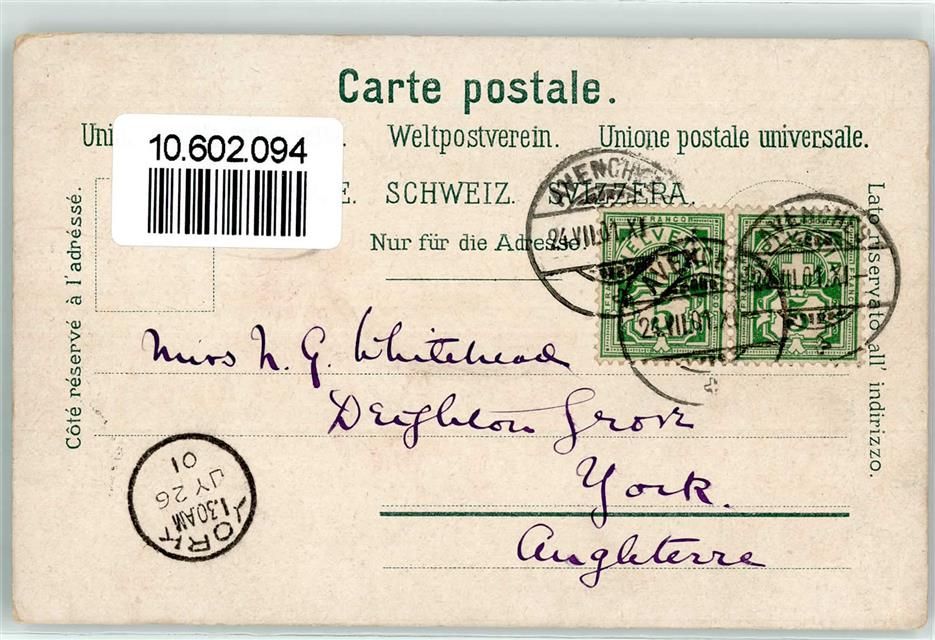 Carte postale.
10.602.094
Uni Weltpostverein. Unione postale universale.
E. SCHWEIZ. SVIZZERA.
Nur für die Adresse.
Côté réservé à l'adréssé.
Lato riservato all' indirizzo.
AVENCHES
24.VII.01.XI
FRANCO
HELVETIA
5
AVENCHES
24.VII.01.XI
AVENCHES
24.VII.01.XI
Miss N. G. Whitehead
Deighton Grove
York.
Angleterre
YORK
1.30AM
JY 26
01